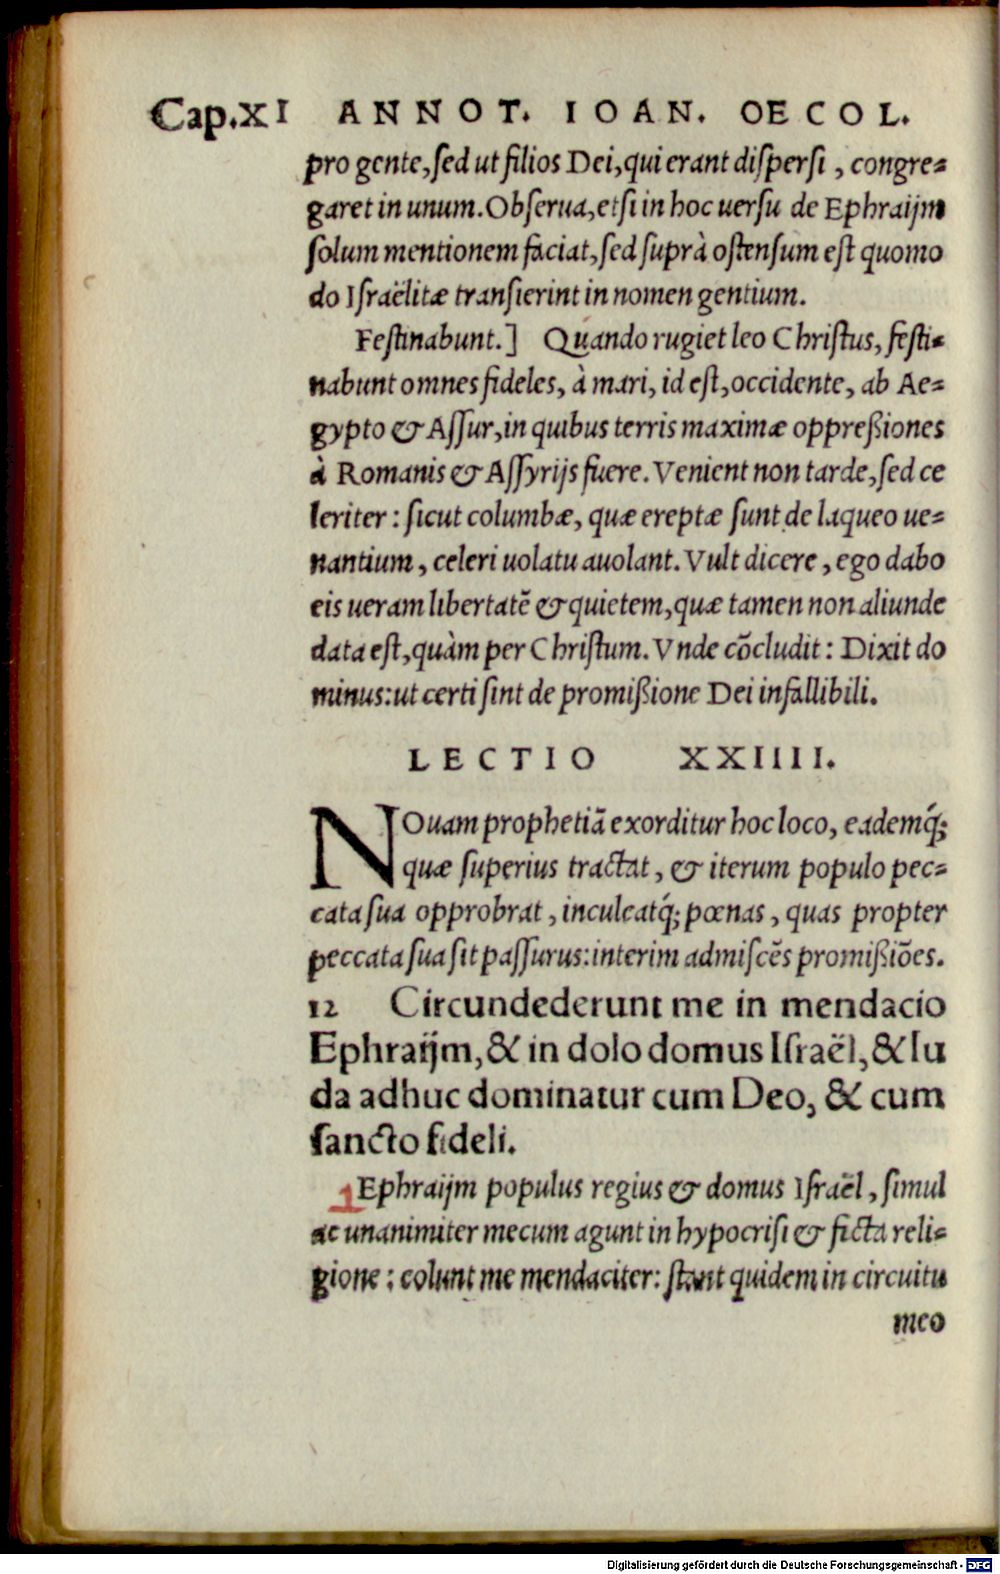 Cap.XI ANNOT. IOAN. OECOL.
pro gente, sed ut filios Dei, qui erant dispersi, congre=
garet in unum. Obserua, etsi in hoc uersu de Ephraijm
solum mentionem faciat, sed suprà ostensum est quomo
do Israëlitæ transierint in nomen gentium.
Festinabunt.] Quando rugiet leo Christus, festi=
nabunt omnes fideles, à mari, id est, occidente, ab Ae=
gypto & Assur, in quibus terris maximæ oppreßiones
à Romanis & Assyrijs fuere. Venient non tarde, sed ce
leriter: sicut columbæ, quæ ereptæ sunt de laqueo ue=
nantium, celeri uolatu auolant. Vult dicere, ego dabo
eis ueram libertatē & quietem, quæ tamen non aliunde
data est, quàm per Christum. Vnde cōcludit: Dixit do
minus: ut certi sint de promißione Dei infallibili.
LECTIO XXIIII.
NOuam prophetiā exorditur hoc loco, eademq́;
quæ superius tractat, & iterum populo pec=
cata sua opprobrat, inculcatq́; pœnas, quas propter
peccata sua sit passurus: interim admiscēs promißiōes.
12 Circundederunt me in mendacio
Ephraijm, & in dolo domus Israël, & Iu
da adhuc dominatur cum Deo, & cum
sancto fideli.
Ephraijm populus regius & domus Israël, simul
ac unanimiter mecum agunt in hypocrisi & ficta reli=
gione: colunt me mendaciter: stant quidem in circuitu
meo
Digitalisierung gefördert durch die Deutsche Forschungsgemeinschaft - DFG